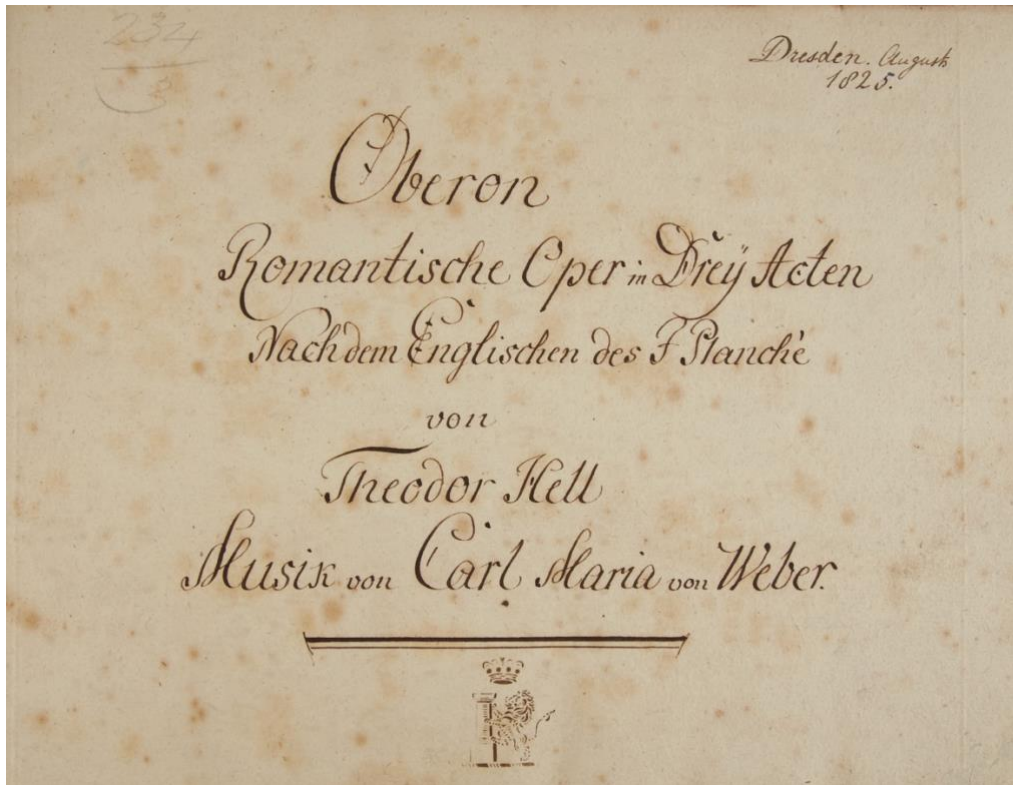 234
3
Dresden. August
1825.
Oberon
Romantische Oper in Dreÿ Acten
Nach dem Englischen des F Planché
von
Theodor Hell
Musik von Carl Maria von Weber.